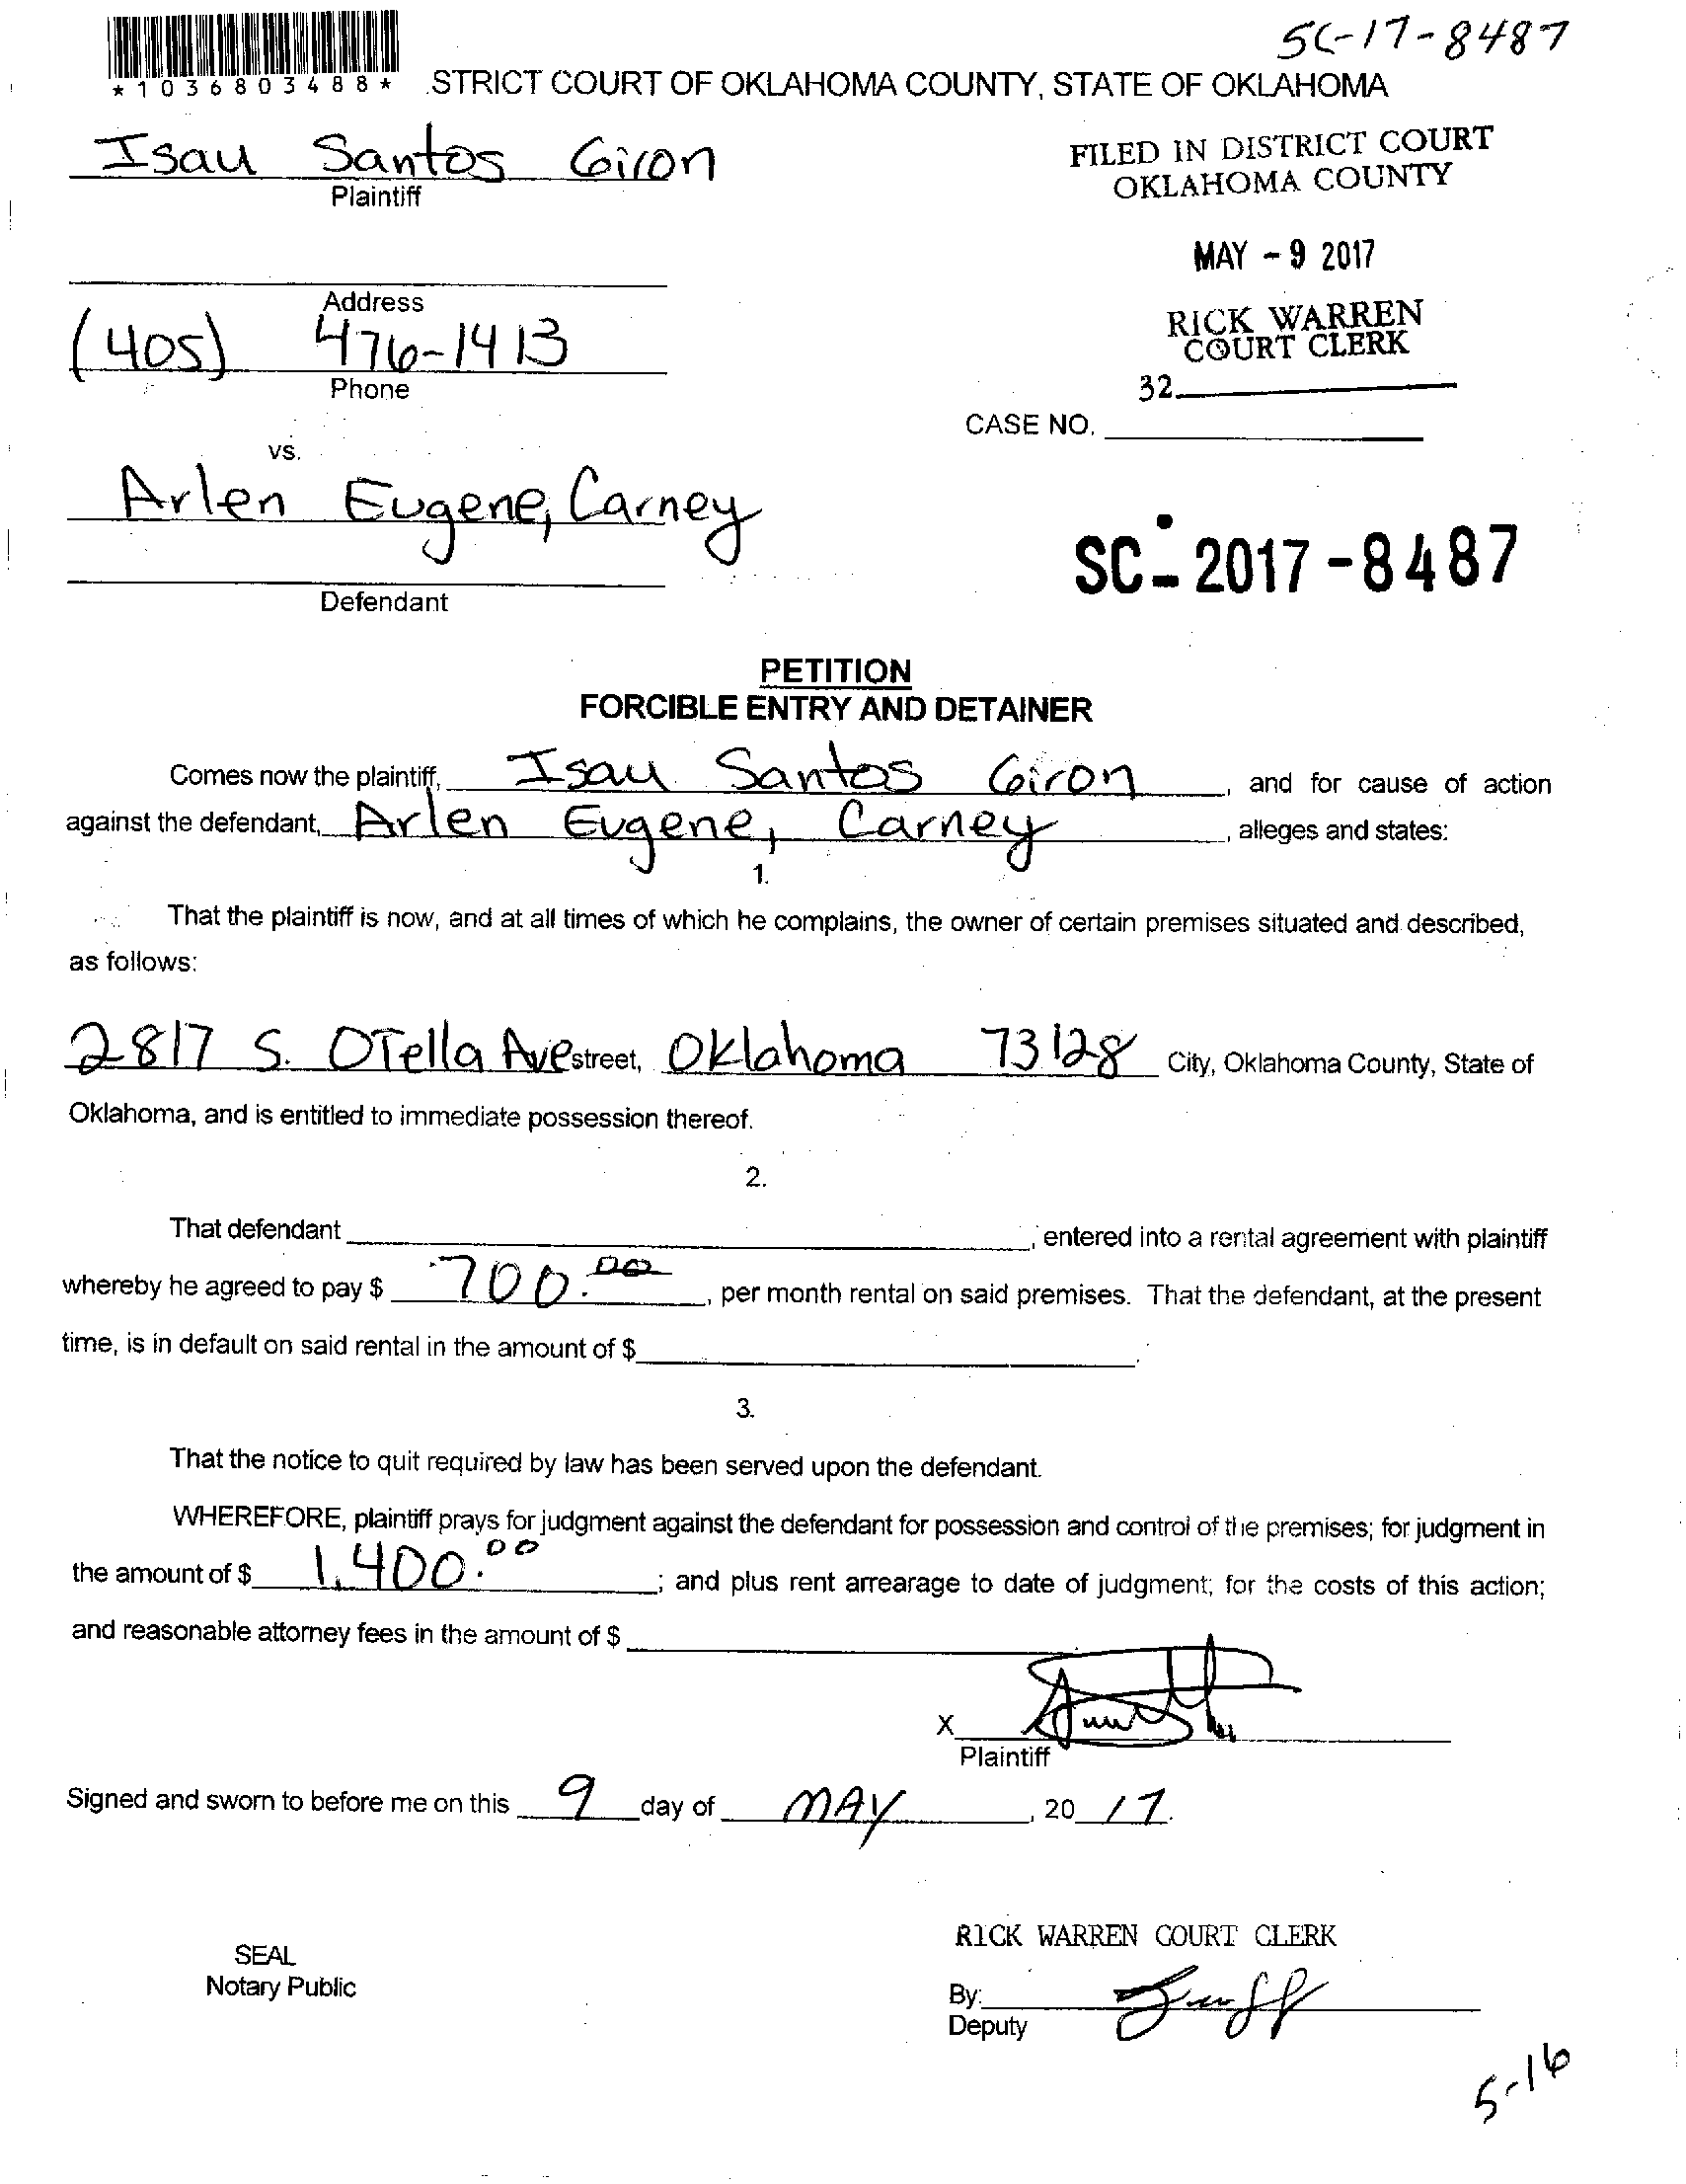 SC-17-8487
*1036803488* .STRICT COURT OF OKLAHOMA COUNTY, STATE OF OKLAHOMA
Isau Santos Giron
Plaintiff
FILED IN DISTRICT COURT
OKLAHOMA COUNTY
MAY - 9 2017
RICK WARREN
COURT CLERK
32
Address
(405) 476-1413
Phone
CASE NO.
vs.
Arlen Eugene, Carney
Defendant
SC - 2017 - 8487
PETITION
FORCIBLE ENTRY AND DETAINER
Comes now the plaintiff, Isau Santos Giron, and for cause of action
against the defendant, Arlen Eugene, Carney, alleges and states:
1.
That the plaintiff is now, and at all times of which he complains, the owner of certain premises situated and described,
as follows:
2817 S. OTella Ave street, Oklahoma 73128 City, Oklahoma County, State of
Oklahoma, and is entitled to immediate possession thereof.
2.
That defendant , entered into a rental agreement with plaintiff
whereby he agreed to pay $ 700.00, per month rental on said premises. That the defendant, at the present
time, is in default on said rental in the amount of $ .
3.
That the notice to quit required by law has been served upon the defendant.
WHEREFORE, plaintiff prays for judgment against the defendant for possession and control of the premises; for judgment in
the amount of $ 1,400.00; and plus rent arrearage to date of judgment; for the costs of this action;
and reasonable attorney fees in the amount of $
X
Plaintiff
Signed and sworn to before me on this 9 day of MAY, 20 17.
RICK WARREN COURT CLERK
SEAL
Notary Public
By:
Deputy
5-16